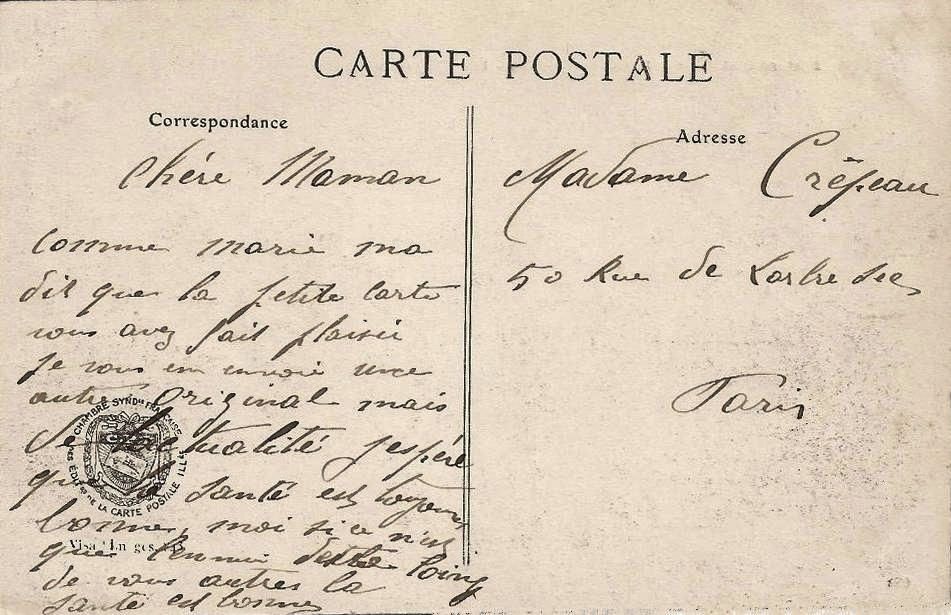 CARTE POSTALE
Correspondance
chére Maman
comme marie ma
dit que la petite carte
vous avez fait plaisir
je vous en envoie une
autre original mais
de l'actualité j'espére
que la santé est toujours
bonne, moi si ce n'est
que l'ennui loing
de vous autres la
santé est bonne
CHAMBRE SYND^le FRANÇAISE
DES ÉDIT^rs DE LA CARTE POSTALE ILL^ée
Visa
Adresse
Madame Crêpeau
50 Rue de Larbre Sec
Paris